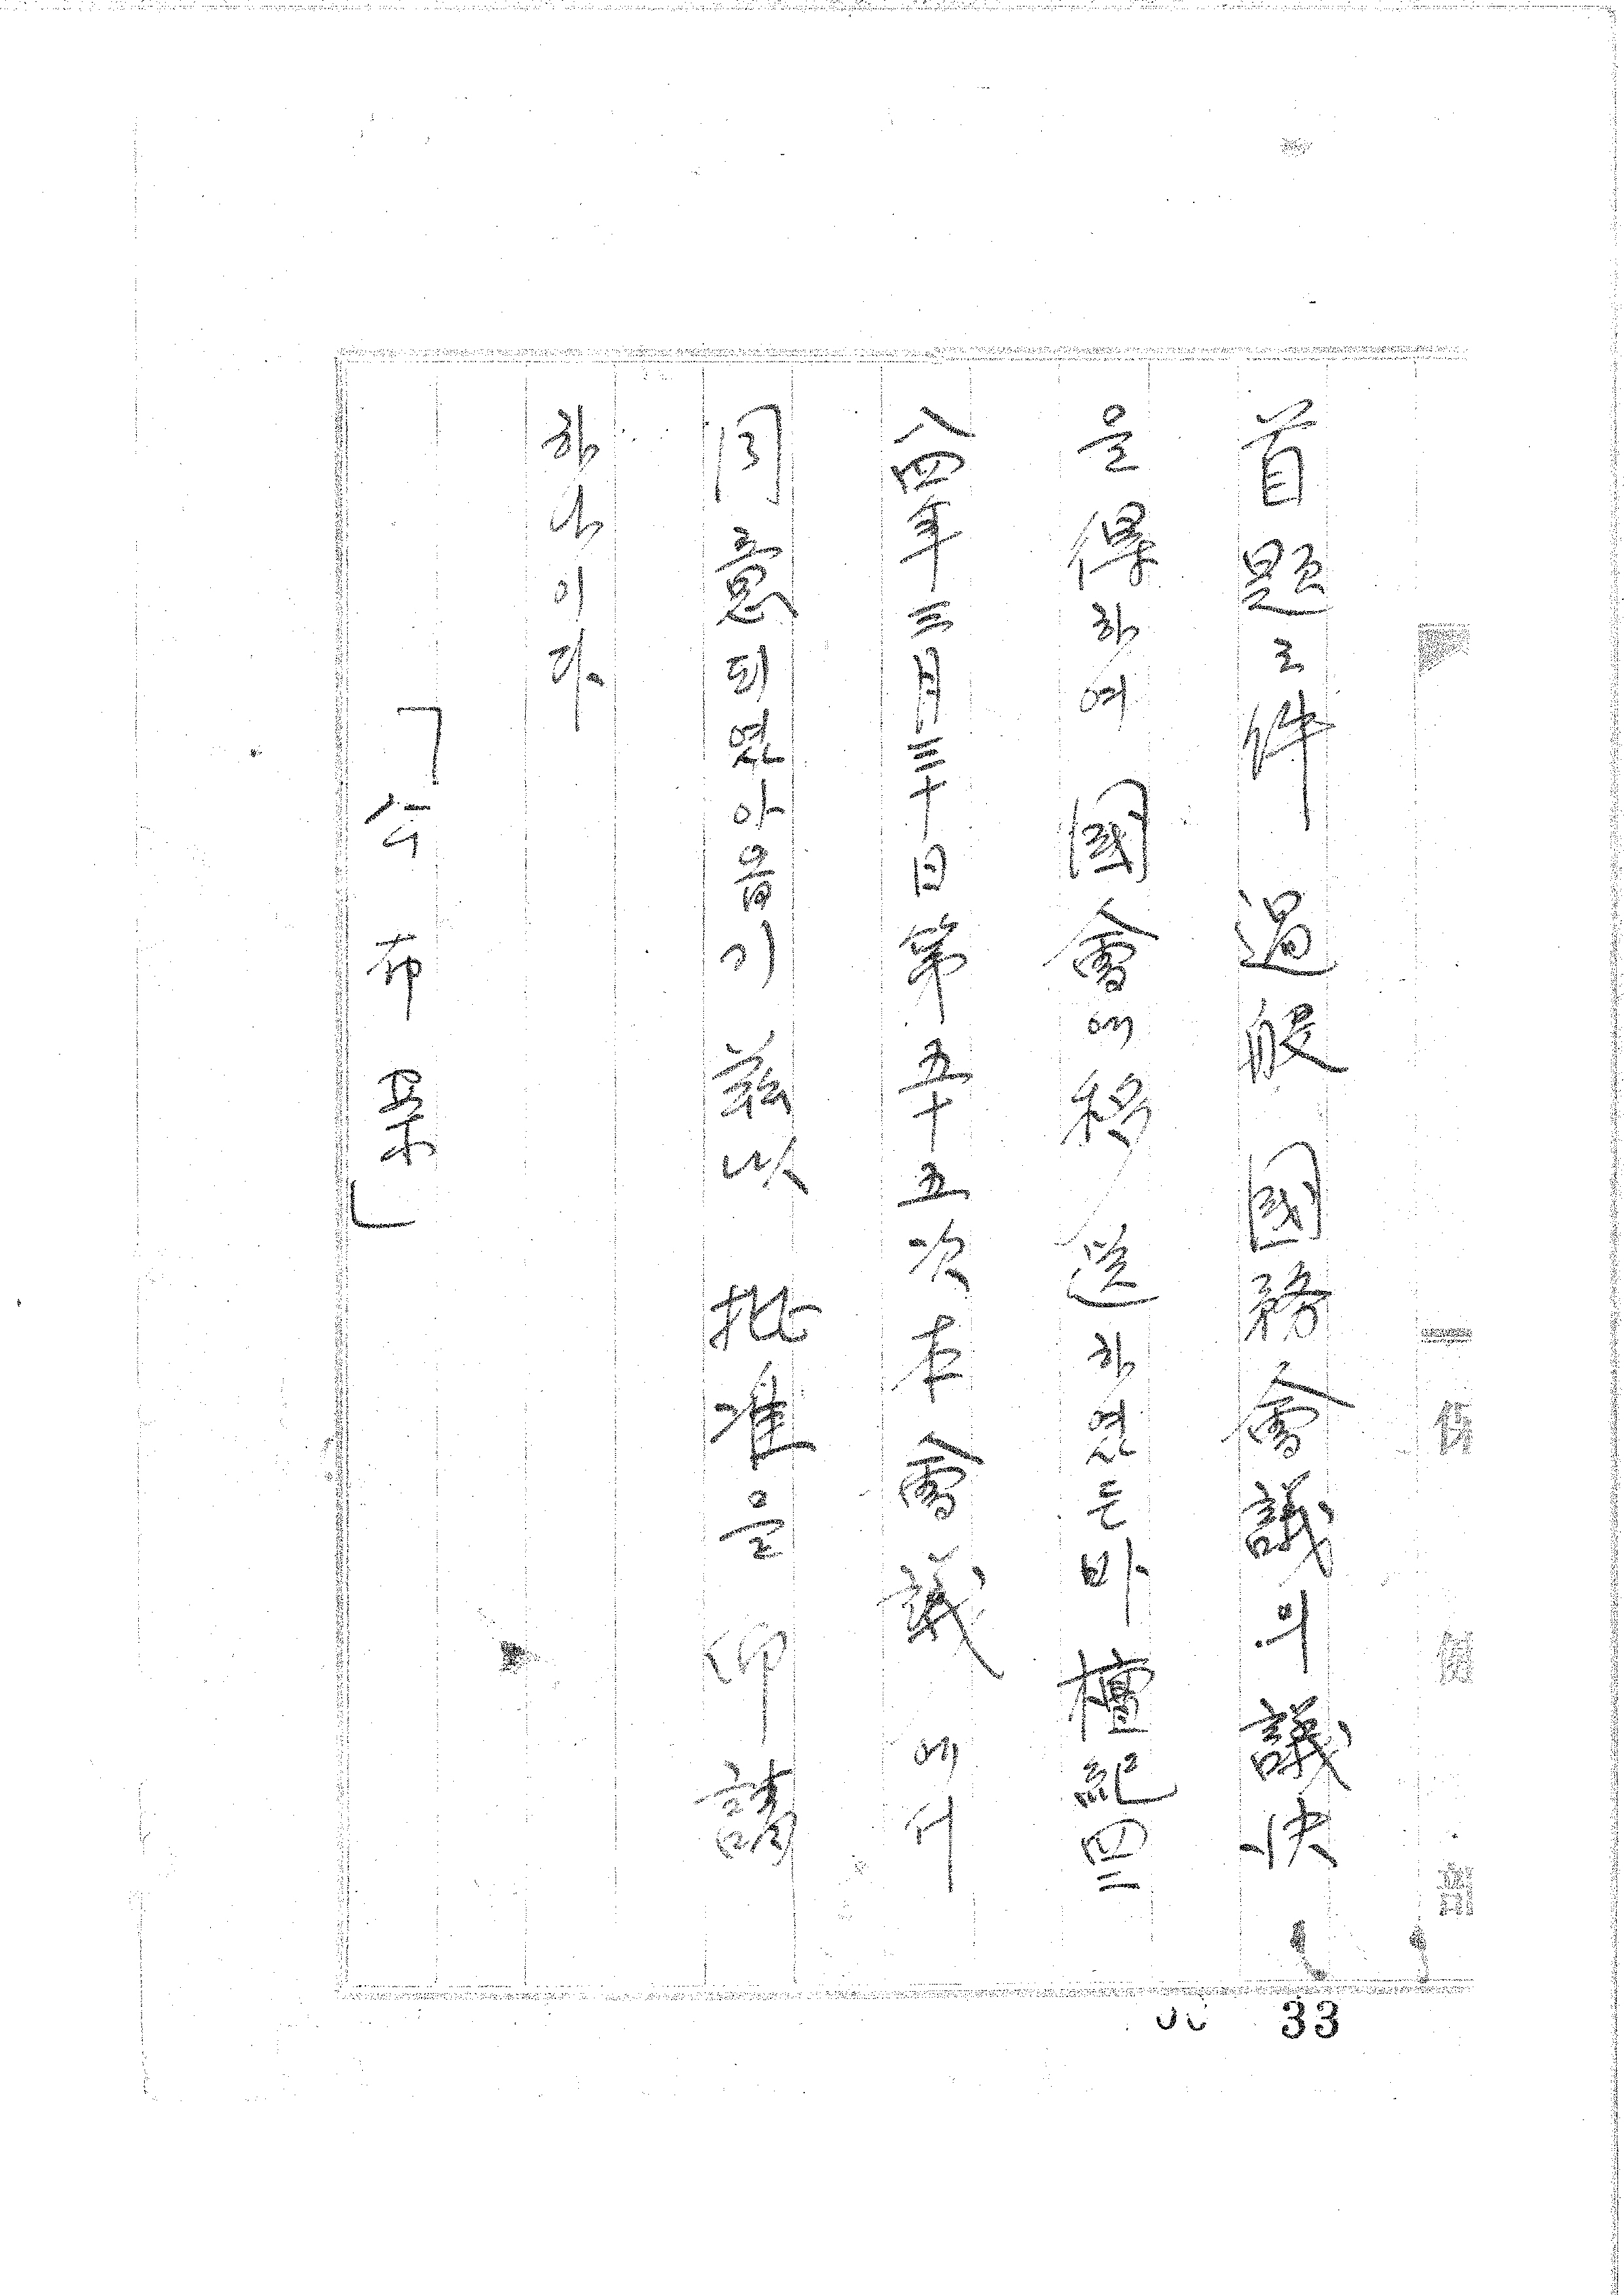 首題之件 過般 國務會議의 議決
을 得하여 國會에 移送하였든바 檀紀四二
八四年三月三十日第五十五次本會議에서
同意되였아옵기 玆以 批准을 仰請
하나이다.
「公布案」
33